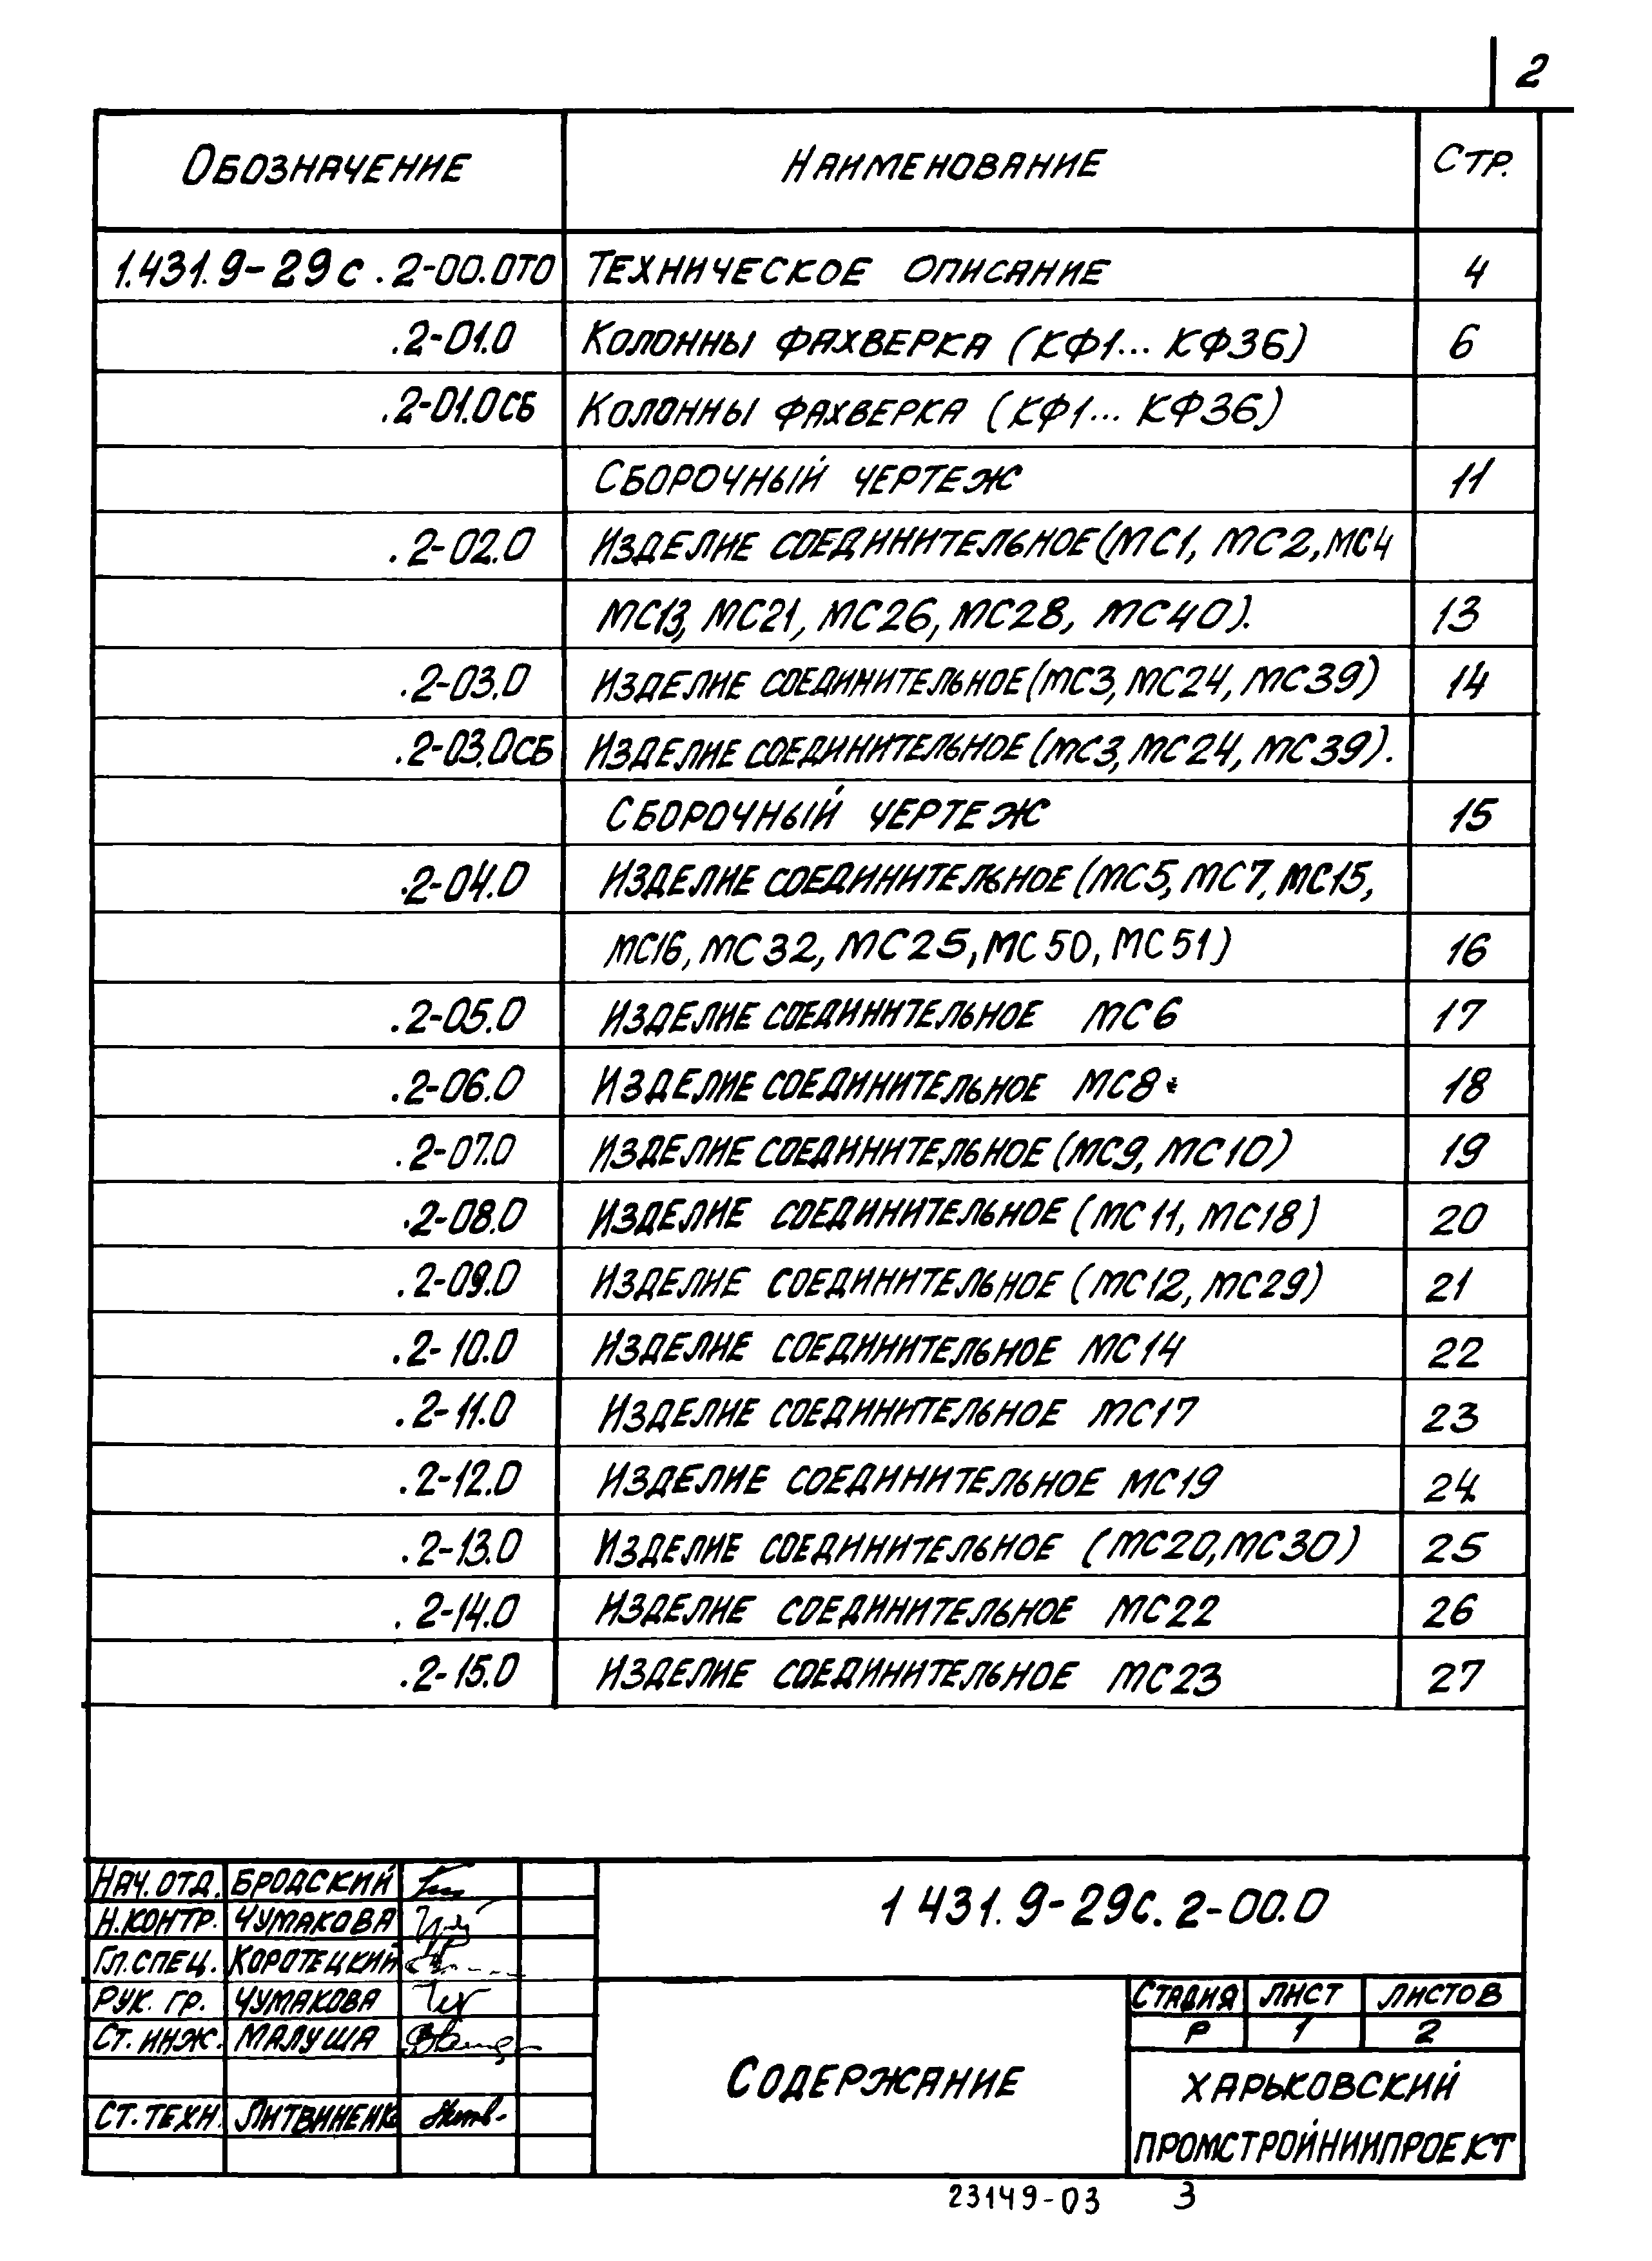 2
Обозначение Наименование Стр.
1.431.9-29с .2-00.0ТО Техническое описание 4
.2-01.0 Колонны фахверка (КФ1... КФ36) 6
.2-01.0СБ Колонны фахверка (КФ1... КФ36)
Сборочный чертеж 11
.2-02.0 Изделие соединительное (МС1, МС2, МС4
МС13, МС21, МС26, МС28, МС40). 13
.2-03.0 Изделие соединительное (МС3, МС24, МС39) 14
.2-03.0СБ Изделие соединительное (МС3, МС24, МС39).
Сборочный чертеж 15
.2-04.0 Изделие соединительное (МС5, МС7, МС15,
МС16, МС32, МС25, МС50, МС51) 16
.2-05.0 Изделие соединительное МС6 17
.2-06.0 Изделие соединительное МС8 18
.2-07.0 Изделие соединительное (МС9, МС10) 19
.2-08.0 Изделие соединительное (МС11, МС18) 20
.2-09.0 Изделие соединительное (МС12, МС29) 21
.2-10.0 Изделие соединительное МС14 22
.2-11.0 Изделие соединительное МС17 23
.2-12.0 Изделие соединительное МС19 24
.2-13.0 Изделие соединительное (МС20, МС30) 25
.2-14.0 Изделие соединительное МС22 26
.2-15.0 Изделие соединительное МС23 27
Нач. отд. Бродский
Н.контр. Чумакова
Гл.спец. Коротецкий
Рук. гр. Чумакова
Ст. инж. Малуша
Ст. техн. Литвиненко
1 431. 9-29с. 2-00.0
Содержание
Стадия Лист Листов
Р 1 2
Харьковский
Промстройниипроект
23149-03 3